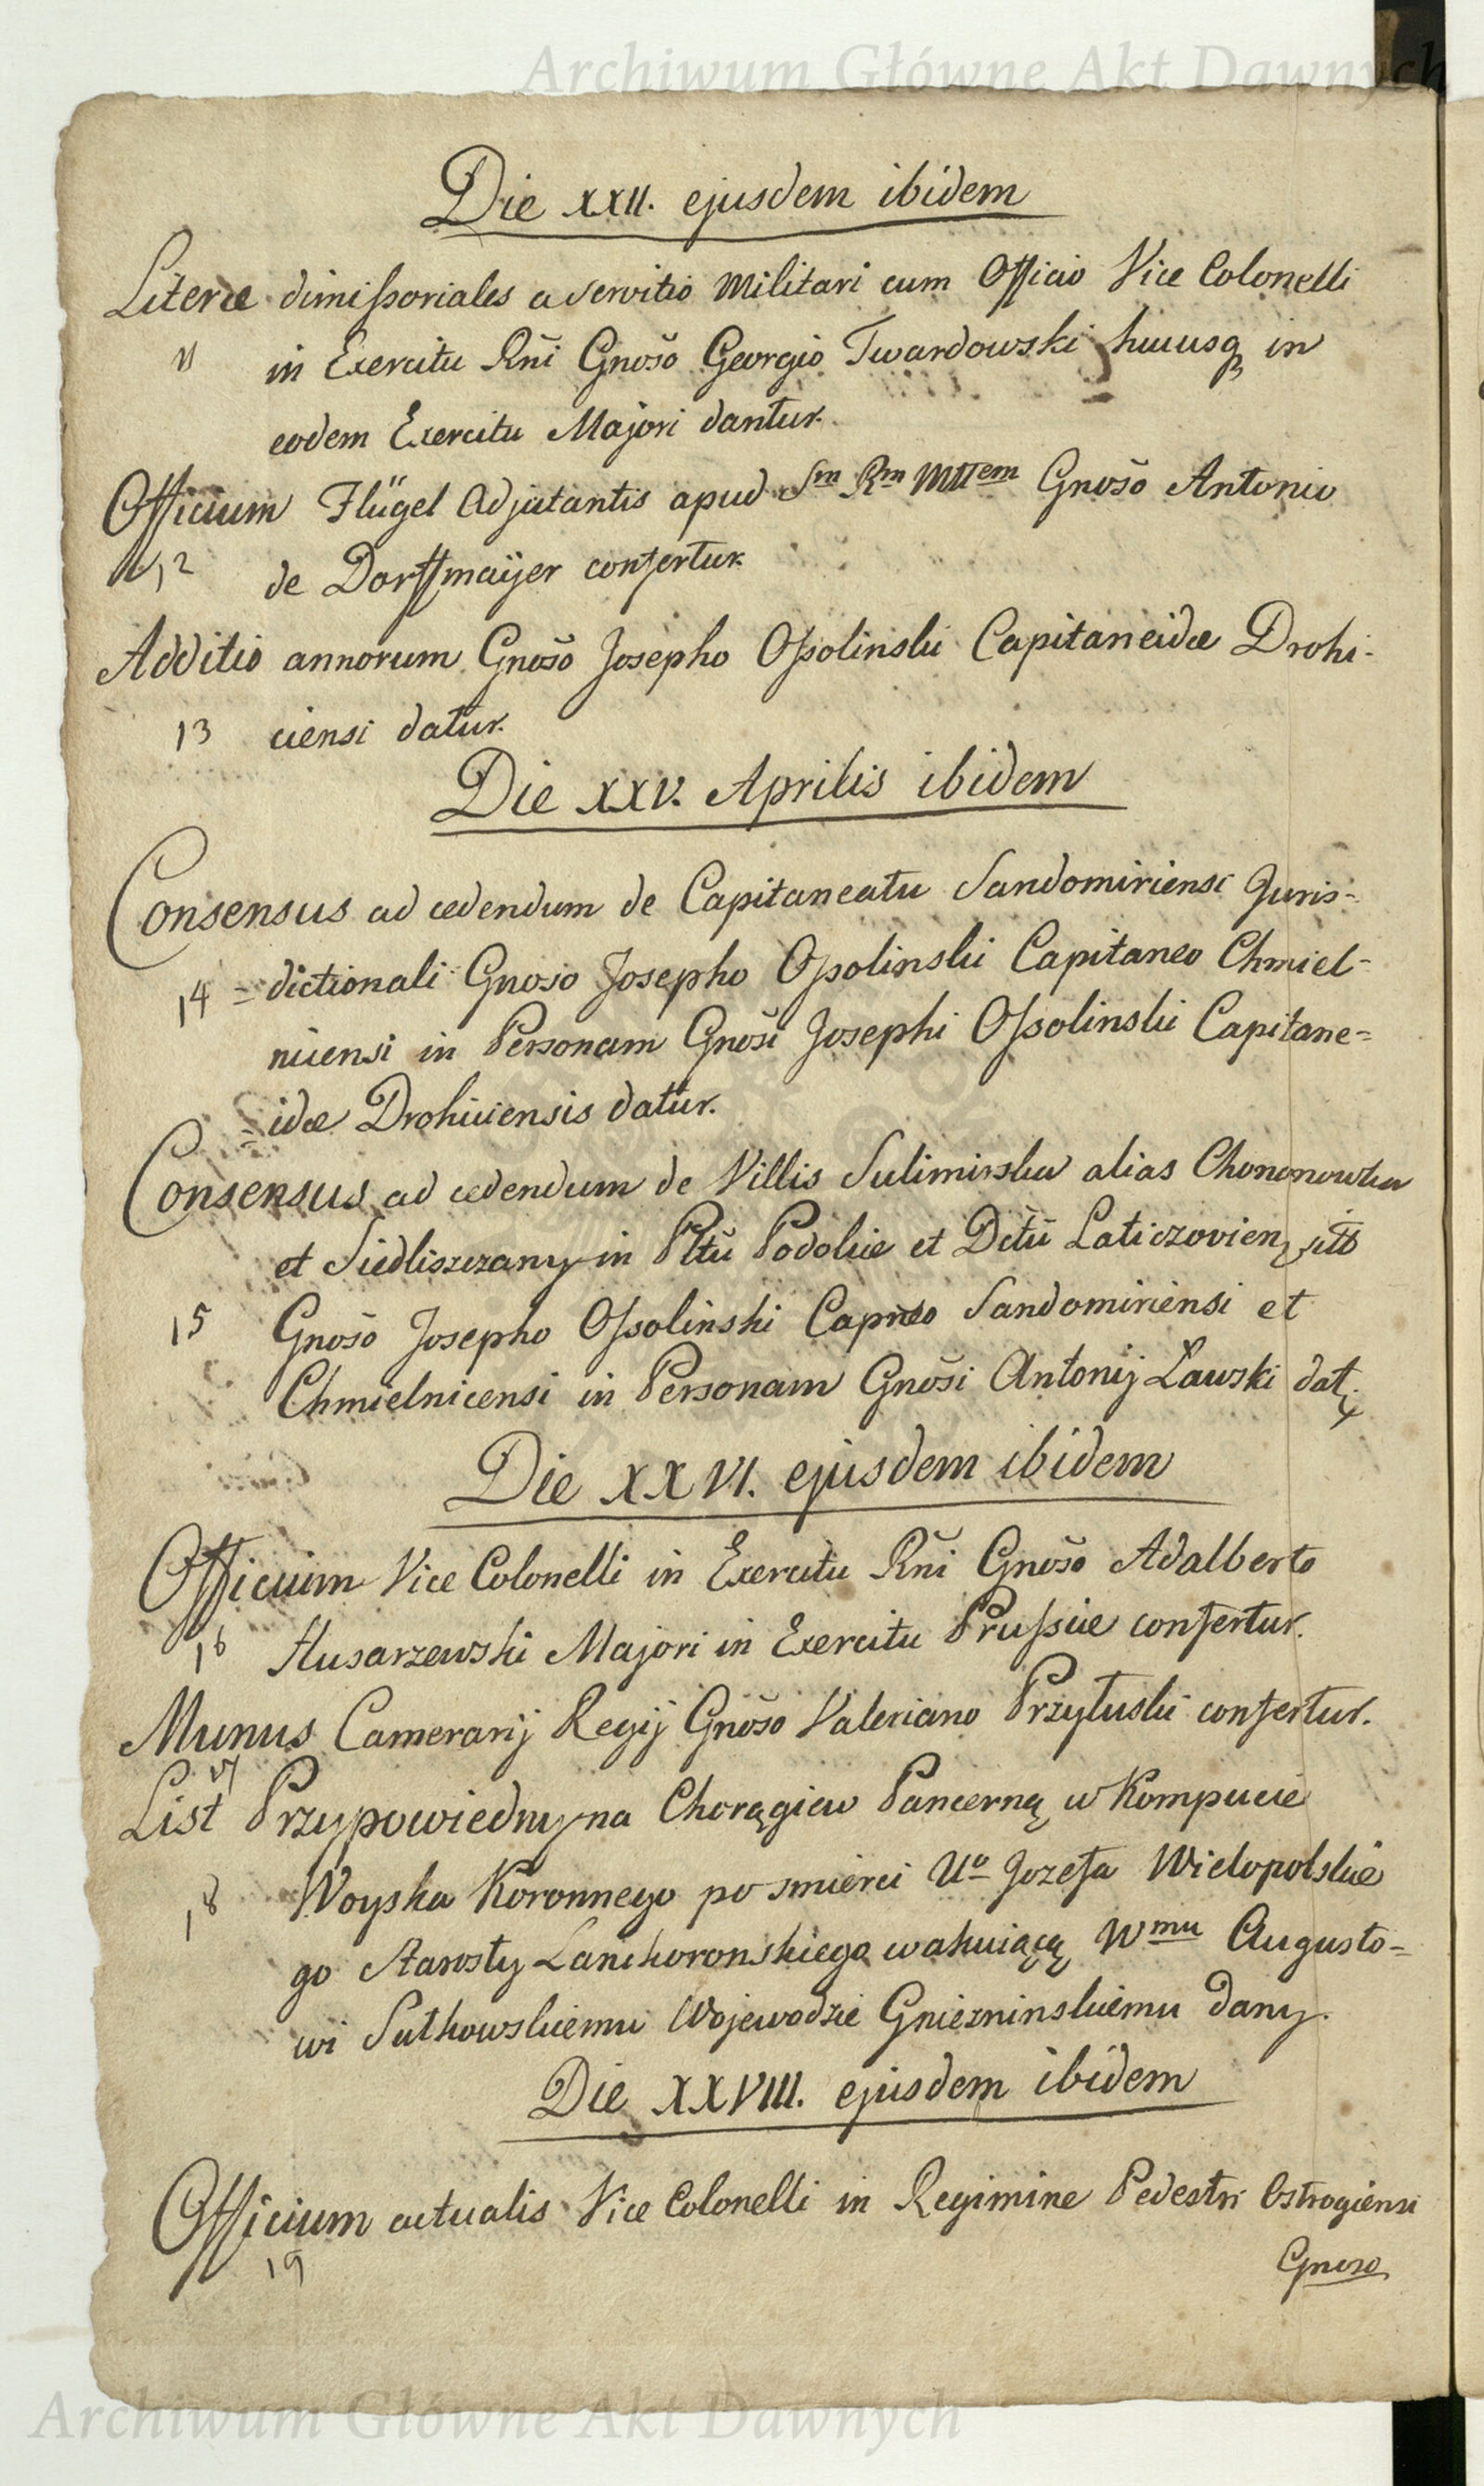 Archiwum Główne Akt Dawnych
Die XXII. ejusdem ibidem
Literæ dimissoriales a servitio Militari cum Officio Vice Colonelli
11 in Exercitu Rñi Gnoso Georgio Twardowski hucusq in
eodem Exercitu Majori dantur.
Officium Flügel Adjutantis apud Sm Rm Mttem Gnoso Antonio
12 de Dorffmaÿer confertur.
Additio annorum Gnoso Josepho Ossolinski Capitaneidæ Drohi-
13 ciensi datur.
Die XXV. Aprilis ibidem
Consensus ad cedendum de Capitaneatu Sandomiriensi Juris-
14 =dictionali Gnoso Josepho Ossolinski Capitaneo Chmiel=
nicensi in Personam Gnosi Josephi Ossolinski Capitane=
=idæ Drohiciensis datur.
Consensus ad cedendum de Villis Sulimirska alias Chononowka
et Siedliszczany in Pltũ Podoliæ et Dctũ Laticzovien sitis
15 Gnoso Josepho Ossolinski Capneo Sandomiriensi et
Chmielnicensi in Personam Gnosi Antonij Ławski dat
Die XXVI. ejusdem ibidem
Officium Vice Colonelli in Exercitu Rñi Gnoso Adalberto
16 Husarzewski Majori in Exercitu Prussiæ confertur.
Munus Camerarij Regij Gnoso Valeriano Przyłuski confertur.
17
List Przypowiedny na Chorągiew Pancerną w Kompucie
18 Woyska Koronnego po smierci Uo Jozefa Wielopolskie
go Starosty Lanckoronskiego wakuiącą Wmu Augusto=
wi Sułkowskiemu Wojewodzie Gnieznинskiemu dany.
Die XXVIII. ejusdem ibidem
Officium actualis Vice Colonelli in Regimine Pedestri Ostrogiensi
19
Gnoso
Archiwum Główne Akt Dawnych